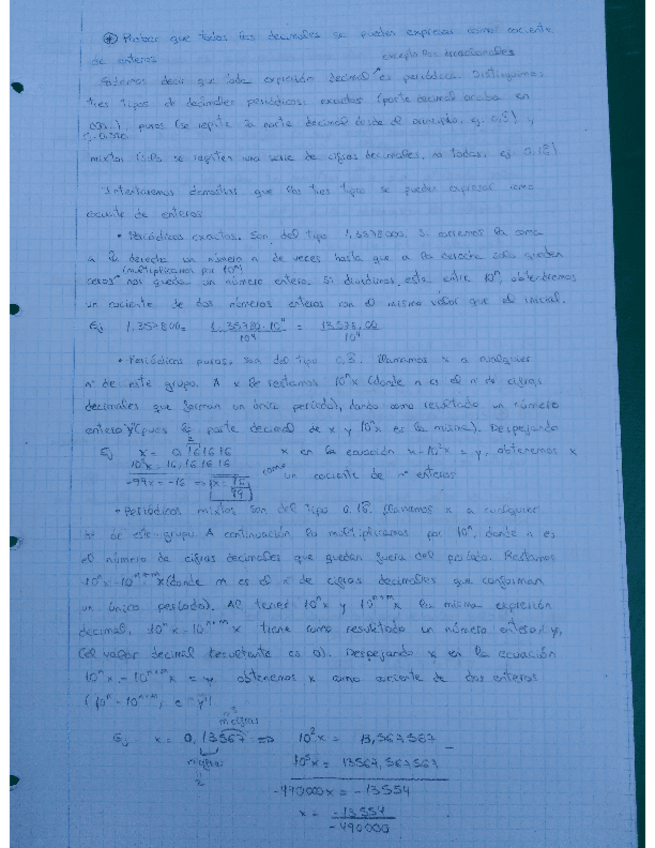 * Probar que todos los decimales se pueden expresar como cociente
de enteros excepto los irracionales
Podemos decir que toda expresión decimal es periódica. Distinguimos
tres tipos de decimales periódicos: exactos (parte decimal acaba en
000...), puros (se repite la parte decimal desde el principio, ej.
mixtos (sólo se repiten una serie de cifras decimales, no todas, ej.
Intentaremos demostrar que los tres tipos se pueden expresar como
cociente de enteros
• Periódicos exactos. Son del tipo Si corremos la coma
a la derecha un número n de veces hasta que a la derecha solo queden
ceros (multiplicamos por 10ⁿ) nos queda un número entero. Si dividimos este entre 10ⁿ, obtendremos
un cociente de dos números enteros con el mismo valor que el inicial.
Ej
• Periódicos puros, son del tipo Llamamos x a cualquier
nº de este grupo. A x le restamos 10ⁿx (donde n es el nº de cifras
decimales que forman un único período), dando como resultado un número
entero "y" (pues la parte decimal de x y 10ⁿx es la misma). Despejando
Ej x = 0,161616 x en la ecuación x-10ⁿx = y, obtenemos x
10²x = 16,161616 como un cociente de nº enteros
-99x = -16 => x = 16/99
• Periódicos mixtos son del tipo Llamamos x a cualquier
nº de este grupo. A continuación lo multiplicamos por 10ⁿ, donde n es
el número de cifras decimales que quedan fuera del período. Restamos
10ⁿx-10ⁿ⁺ᵐx (donde m es el nº de cifras decimales que conforman
un único período). Al tener 10ⁿx y 10ⁿ⁺ᵐx la misma expresión
decimal, 10ⁿx-10ⁿ⁺ᵐx tiene como resultado un número entero, y,
(el valor decimal resultante es 0). Despejando x en la ecuación
10ⁿx-10ⁿ⁺ᵐx = y obtenemos x como cociente de dos enteros
(10ⁿ-10ⁿ⁺ᵐ, e "y")
3
m cifras
Ej x = 0,13567 => 10²x = 13,567567
n cifras 10⁵x = 13567,567567
2
x = -13554